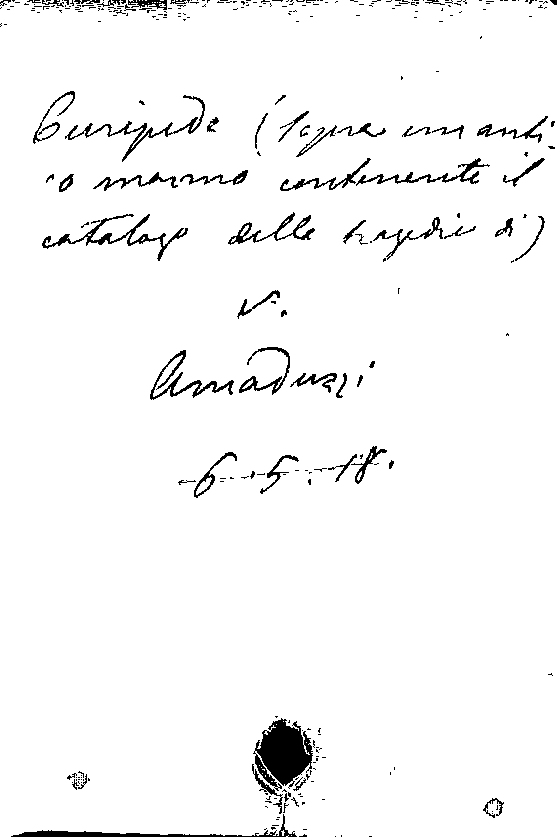 Euripide (sopra un anti-
co marmo contenente il
catalogo delle tragedie di)
v.
Amaduzzi
6.5.18.